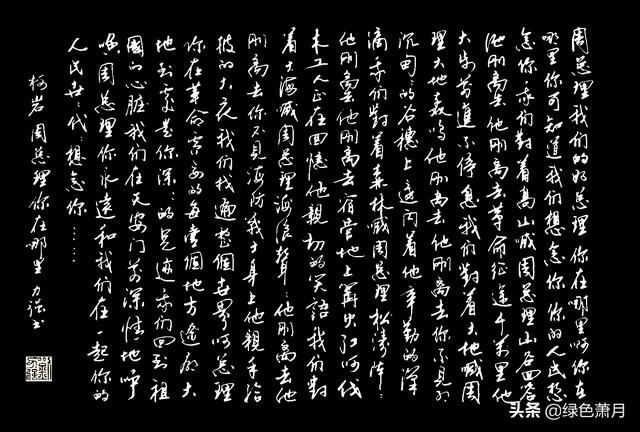 周总理我们的好总理你在哪里啊你在
哪里你可知道我们想念你你的人民想
念你我们對着高山喊周总理山谷回答
他刚离去他刚离去革命征途千万里他
大步前进不停息我们對着大地喊周
理大地轰鸣他刚离去他刚离去你不见那
沉甸甸的谷穗上还闪着他辛勤的
滴我们對着森林喊周总理松涛阵阵
他刚离去他刚离去宿营地上篝火红啊伐
木工人正在回忆他親切的笑语我们對
着大海喊周总理海浪声声他刚离去他
刚离去你不见海防战士身上他親手给
披的大衣我们找遍整個世界啊总理
你在革命需要的每一個地方辽阔大
地到处是你深深的足迹我们回到祖
国的心脏我们在天安门前深情地呼
唤周总理你永远和我们在一起你的
人民世世代代想念你……
柯岩周总理你在哪里 力强书
头条 @绿色萧月